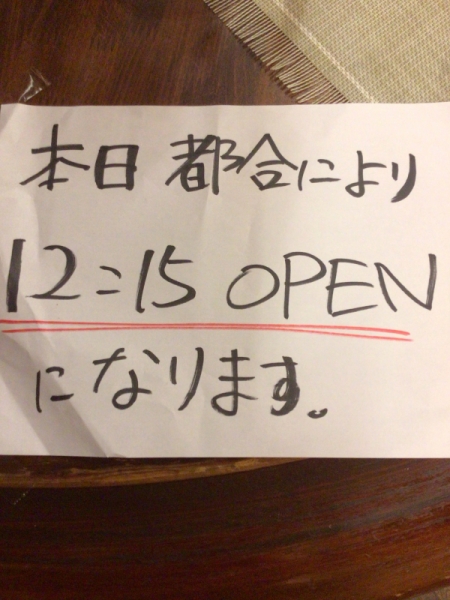 本日 都合により
12:15 OPEN
になります。